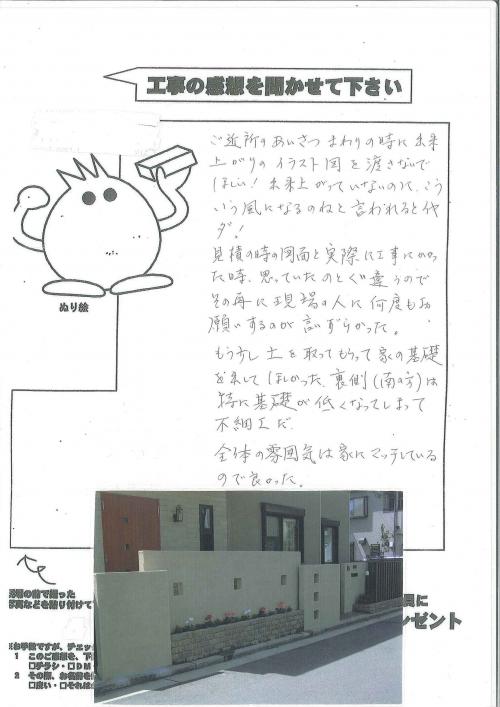 工事の感想を聞かせて下さい
ご近所のあいさつまわりの時に出来
上がりのイラスト図を渡さないで
ほしい！出来上がっていないのに、こう
いう風になるのねと言われるとイヤ
ダ！
見積の時の図面と実際に工事にかかっ
た時、思っていたのと違うので
その再に現場の人に何度もお
願いするのが言ずらかった。
もう少し土を取ってもらって家の基礎
を出してほしかった。裏側(南の方)は
特に基礎が低くなってしまって
不細工だ。
全体の雰囲気は家にマッチしている
ので良かった。
ぬり絵
の前で撮った
写真などを貼り付けて
員に
レゼント
※お手数ですが、チェッ
1 このご感想を、下
□チラシ・□DM
2 その際、お名前を
□良い・□それは